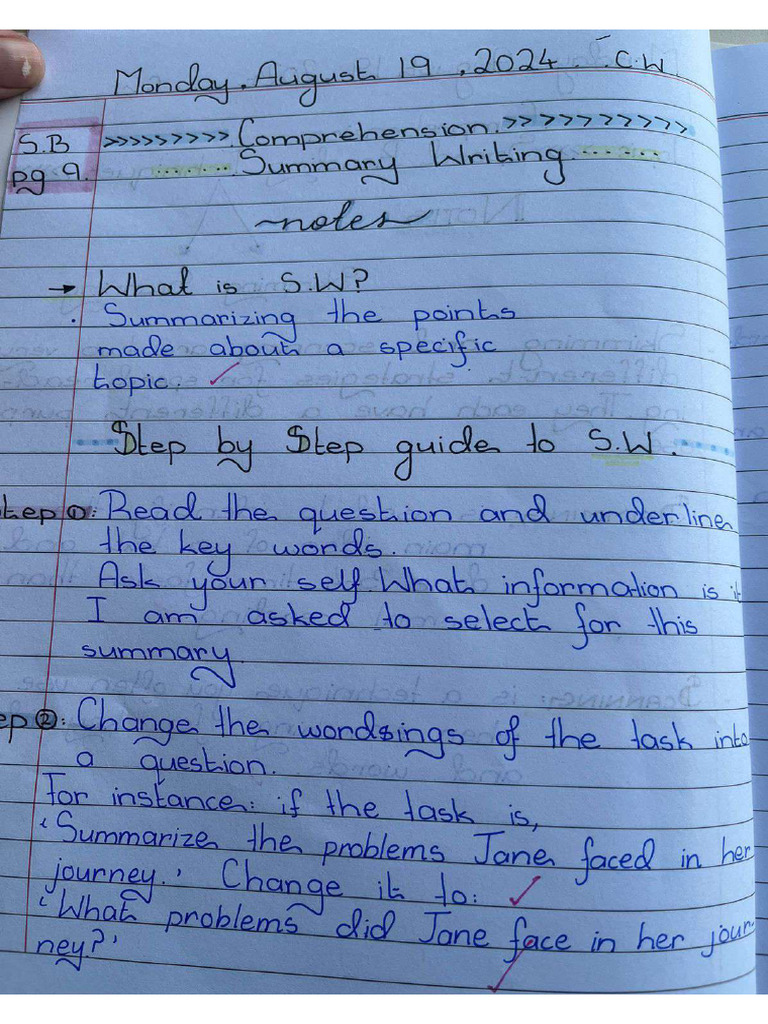 Monday, August 19, 2024. C.W.
S.B >>>>>>>>> Comprehension. >>>>>>>>>>>
pg 9. ...... Summary Writing. ......
notes
→ What is S.W?
. Summarizing the points
made about a specific
topic. ✓
Step by Step guide to S.W.
tep ①: Read the question and underline
the key words.
Ask your self What information is it
I am asked to select for this
summary
ep ②: Change the wordsings of the task into
a question.
For instance: if the task is,
'Summarize the problems Jane faced in her
journey.' Change it to: ✓
'What problems did Jane face in her jour
ney?'